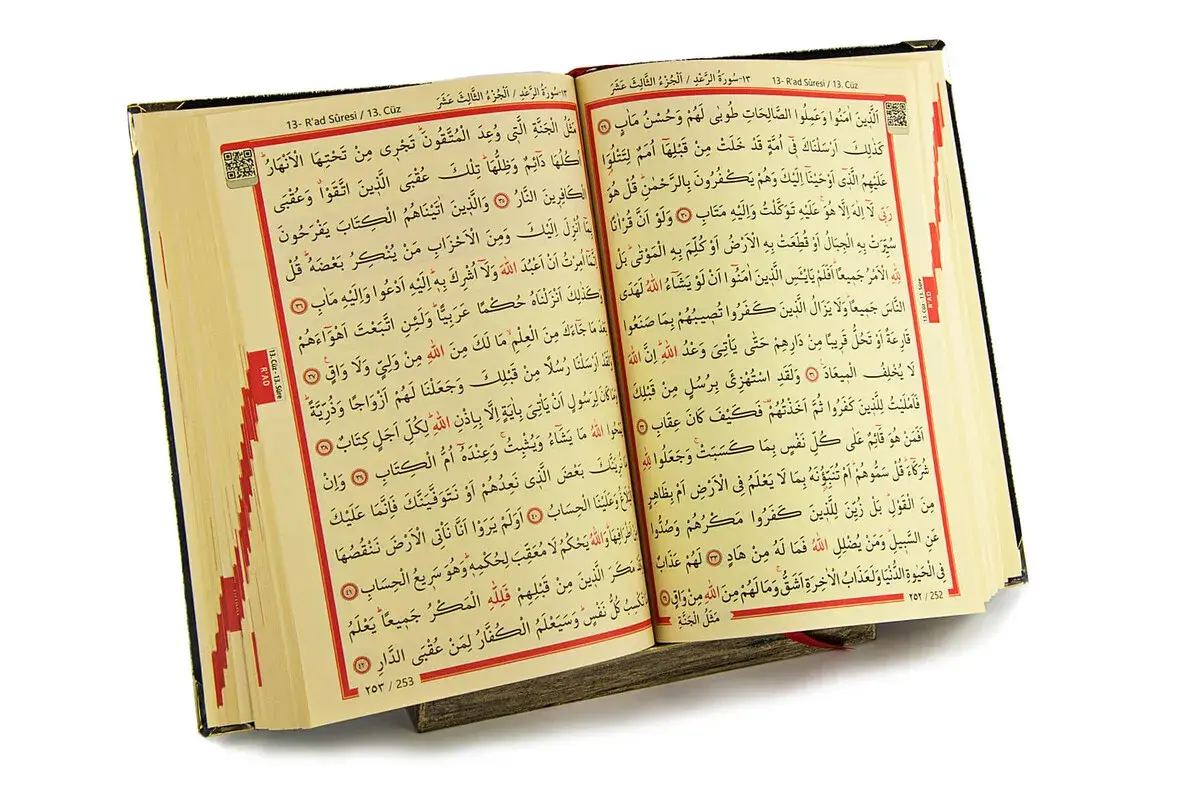 ١٣-سُورَةُ الرَّعْدِ / اَلْجُزْءُ الثَّالِثَ عَشَرَ 13- R'ad Sûresi / 13. Cüz
اَلَّذ۪ينَ اٰمَنُوا وَعَمِلُوا الصَّالِحَاتِ طُوبٰى لَهُمْ وَحُسْنُ مَاٰبٍ ﴿٢٩﴾
كَذٰلِكَ اَرْسَلْنَاكَ ف۪ٓي اُمَّةٍ قَدْ خَلَتْ مِنْ قَبْلِهَٓا اُمَمٌ لِتَتْلُوَا۬
عَلَيْهِمُ الَّذ۪ٓي اَوْحَيْنَٓا اِلَيْكَ وَهُمْ يَكْفُرُونَ بِالرَّحْمٰنِۜ قُلْ هُوَ
رَبّ۪ي لَٓا اِلٰهَ اِلَّا هُوَۚ عَلَيْهِ تَوَكَّلْتُ وَاِلَيْهِ مَتَابِ ﴿٣٠﴾ وَلَوْ اَنَّ قُرْاٰنًا
سُيِّرَتْ بِهِ الْجِبَالُ اَوْ قُطِّعَتْ بِهِ الْاَرْضُ اَوْ كُلِّمَ بِهِ الْمَوْتٰىۜ بَلْ
لِلّٰهِ الْاَمْرُ جَم۪يعًاۜ اَفَلَمْ يَايْـَٔسِ الَّذ۪ينَ اٰمَنُٓوا اَنْ لَوْ يَشَٓاءُ اللّٰهُ لَهَدَى
النَّاسَ جَم۪يعًاۜ وَلَا يَزَالُ الَّذ۪ينَ كَفَرُوا تُص۪يبُهُمْ بِمَا صَنَعُوا
قَارِعَةٌ اَوْ تَحُلُّ قَر۪يبًا مِنْ دَارِهِمْ حَتّٰى يَأْتِيَ وَعْدُ اللّٰهِۜ اِنَّ اللّٰهَ
لَا يُخْلِفُ الْم۪يعَادَ۟ ﴿٣١﴾ وَلَقَدِ اسْتُهْزِئَ بِرُسُلٍ مِنْ قَبْلِكَ
فَاَمْلَيْتُ لِلَّذ۪ينَ كَفَرُوا ثُمَّ اَخَذْتُهُمْ۠ فَكَيْفَ كَانَ عِقَابِ ﴿٣٢﴾
اَفَمَنْ هُوَ قَٓائِمٌ عَلٰى كُلِّ نَفْسٍ بِمَا كَسَبَتْۚ وَجَعَلُوا لِلّٰهِ
شُرَكَٓاءَۜ قُلْ سَمُّوهُمْۜ اَمْ تُنَبِّؤُ۫نَهُ بِمَا لَا يَعْلَمُ فِي الْاَرْضِ اَمْ بِظَاهِرٍ
مِنَ الْقَوْلِۜ بَلْ زُيِّنَ لِلَّذ۪ينَ كَفَرُوا مَكْرُهُمْ وَصُدُّوا
عَنِ السَّب۪يلِۜ وَمَنْ يُضْلِلِ اللّٰهُ فَمَا لَهُ مِنْ هَادٍ ﴿٣٣﴾ لَهُمْ عَذَابٌ
فِي الْحَيٰوةِ الدُّنْيَا وَلَعَذَابُ الْاٰخِرَةِ اَشَقُّۚ وَمَا لَهُمْ مِنَ اللّٰهِ مِنْ وَاقٍ ﴿٣٤﴾
مَثَلُ الْجَنَّةِ
٢٥٢ / 252
13. Cüz - 13. Sûre
R'AD
13- R'ad Sûresi / 13. Cüz ١٣-سُورَةُ الرَّعْدِ / اَلْجُزْءُ الثَّالِثَ عَشَرَ
مَثَلُ الْجَنَّةِ الَّت۪ي وُعِدَ الْمُتَّقُونَۜ تَجْر۪ي مِنْ تَحْتِهَا الْاَنْهَارُۜ
اُكُلُهَا دَٓائِمٌ وَظِلُّهَاۜ تِلْكَ عُقْبَى الَّذ۪ينَ اتَّقَوْاۗ وَعُقْبَى
الْكَافِر۪ينَ النَّارُ ﴿٣٥﴾ وَالَّذ۪ينَ اٰتَيْنَاهُمُ الْكِتَابَ يَفْرَحُونَ
بِمَٓا اُنْزِلَ اِلَيْكَ وَمِنَ الْاَحْزَابِ مَنْ يُنْكِرُ بَعْضَهُۜ قُلْ
اِنَّمَٓا اُمِرْتُ اَنْ اَعْبُدَ اللّٰهَ وَلَٓا اُشْرِكَ بِه۪ۜ اِلَيْهِ اَدْعُوا وَاِلَيْهِ مَاٰبِ ﴿٣٦﴾
وَكَذٰلِكَ اَنْزَلْنَاهُ حُكْمًا عَرَبِيًّاۜ وَلَئِنِ اتَّبَعْتَ اَهْوَٓاءَهُمْ
بَعْدَ مَا جَٓاءَكَ مِنَ الْعِلْمِۙ مَا لَكَ مِنَ اللّٰهِ مِنْ وَلِيٍّ وَلَا وَاقٍ۟ ﴿٣٧﴾
وَلَقَدْ اَرْسَلْنَا رُسُلًا مِنْ قَبْلِكَ وَجَعَلْنَا لَهُمْ اَزْوَاجًا وَذُرِّيَّةًۜ
وَمَا كَانَ لِرَسُولٍ اَنْ يَأْتِيَ بِاٰيَةٍ اِلَّا بِاِذْنِ اللّٰهِۜ لِكُلِّ اَجَلٍ كِتَابٌ ﴿٣٨﴾
يَمْحُوا اللّٰهُ مَا يَشَٓاءُ وَيُثْبِتُۚ وَعِنْدَهُٓ اُمُّ الْكِتَابِ ﴿٣٩﴾ وَاِنْ
بَعْضَ الَّذ۪ي نَعِدُهُمْ اَوْ نَتَوَفَّيَنَّكَ فَاِنَّمَا عَلَيْكَ
وَعَلَيْنَا الْحِسَابُ ﴿٤٠﴾ اَوَلَمْ يَرَوْا اَنَّا نَأْتِي الْاَرْضَ نَنْقُصُهَا
اَطْرَافِهَاۜ وَاللّٰهُ يَحْكُمُ لَا مُعَقِّبَ لِحُكْمِه۪ۜ وَهُوَ سَر۪يعُ الْحِسَابِ ﴿٤١﴾
مَكَرَ الَّذ۪ينَ مِنْ قَبْلِهِمْ فَلِلّٰهِ الْمَكْرُ جَم۪يعًاۜ يَعْلَمُ
تَكْسِبُ كُلُّ نَفْسٍۜ وَسَيَعْلَمُ الْكُفَّارُ لِمَنْ عُقْبَى الدَّارِ ﴿٤٢﴾
٢٥٣ / 253
13. Cüz - 13. Sûre
R'AD